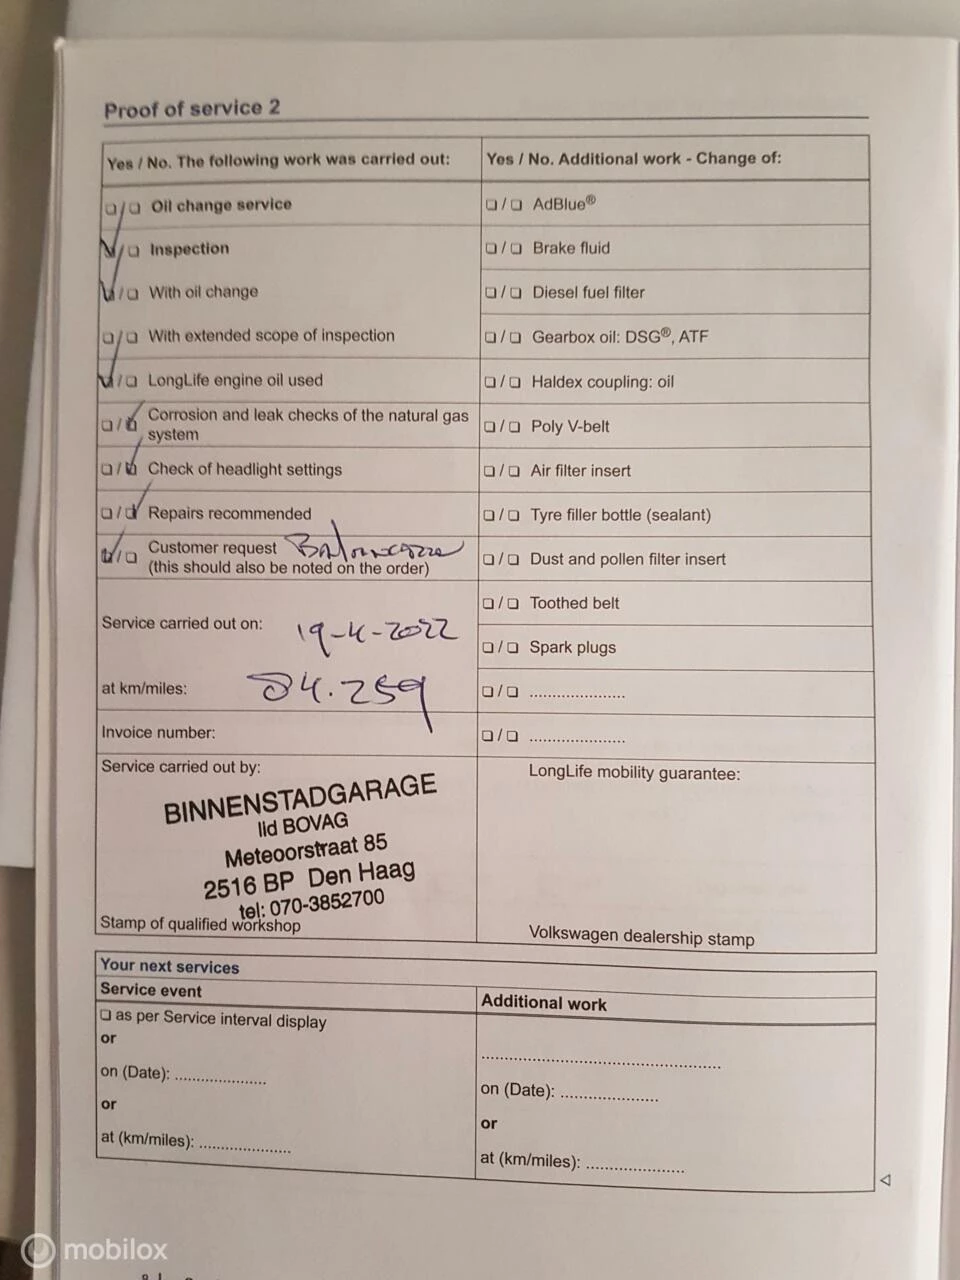 Proof of service 2
Yes / No. The following work was carried out:
❏ / ❏ Oil change service
❏ / ❏ Inspection
❏ / ❏ With oil change
❏ / ❏ With extended scope of inspection
❏ / ❏ LongLife engine oil used
❏ / ❏ Corrosion and leak checks of the natural gas
system
❏ / ❏ Check of headlight settings
❏ / ❏ Repairs recommended
❏ / ❏ Customer request
(this should also be noted on the order)
Service carried out on: 19-4-2022
at km/miles: 84.259
Invoice number:
Service carried out by:
BINNENSTADGARAGE
lid BOVAG
Meteoorstraat 85
2516 BP Den Haag
tel: 070-3852700
Stamp of qualified workshop
Yes / No. Additional work - Change of:
❏ / ❏ AdBlue®
❏ / ❏ Brake fluid
❏ / ❏ Diesel fuel filter
❏ / ❏ Gearbox oil: DSG®, ATF
❏ / ❏ Haldex coupling: oil
❏ / ❏ Poly V-belt
❏ / ❏ Air filter insert
❏ / ❏ Tyre filler bottle (sealant)
❏ / ❏ Dust and pollen filter insert
❏ / ❏ Toothed belt
❏ / ❏ Spark plugs
❏ / ❏ .....................
❏ / ❏ .....................
LongLife mobility guarantee:
Volkswagen dealership stamp
Your next services
Service event
❏ as per Service interval display
or
on (Date): ....................
or
at (km/miles): ....................
Additional work
....................................................
on (Date): .....................
or
at (km/miles): .....................
mobilox